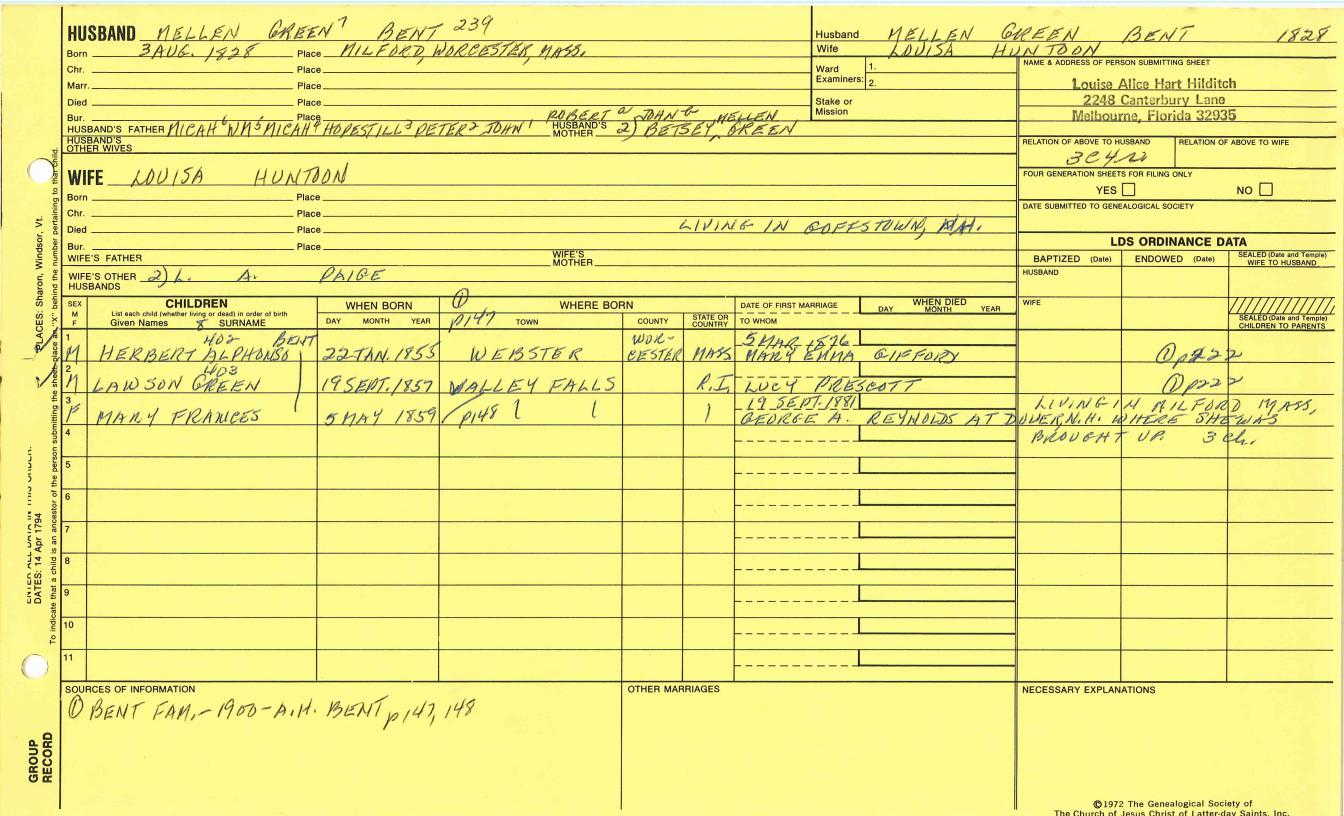 HUSBAND MELLEN GREEN7 BENT 239
Born 3 AUG. 1828 Place MILFORD, WORCESTER, MASS.
Chr. Place
Marr. Place
Died Place
Bur. Place
ROBERT a JOHN b MELLEN
HUSBAND'S FATHER MICAH6 WM5 MICAH4 HOPESTILL3 PETER2 JOHN1 HUSBAND'S MOTHER 2) BETSEY GREEN
HUSBAND'S OTHER WIVES
Husband MELLEN GREEN BENT 1828
Wife LOUISA HUNTOON
Ward Examiners: 1.
2.
Stake or Mission
NAME & ADDRESS OF PERSON SUBMITTING SHEET
Louise Alice Hart Hilditch
2248 Canterbury Lane
Melbourne, Florida 32935
RELATION OF ABOVE TO HUSBAND RELATION OF ABOVE TO WIFE
3C4R
FOUR GENERATION SHEETS FOR FILING ONLY
YES NO
DATE SUBMITTED TO GENEALOGICAL SOCIETY
WIFE LOUISA HUNTOON
Born Place
Chr. Place
Died Place LIVING IN GOFFSTOWN, N.H.
Bur. Place
WIFE'S FATHER WIFE'S MOTHER
WIFE'S OTHER HUSBANDS 2) L. A. PAIGE
LDS ORDINANCE DATA
BAPTIZED (Date) ENDOWED (Date) SEALED (Date and Temple) WIFE TO HUSBAND
HUSBAND
WIFE
SEALED (Date and Temple) CHILDREN TO PARENTS
SEX M F
CHILDREN
List each child (whether living or dead) in order of birth
Given Names 8 SURNAME
WHEN BORN
DAY MONTH YEAR
① p147
WHERE BORN
TOWN COUNTY STATE OR COUNTRY
DATE OF FIRST MARRIAGE
TO WHOM
WHEN DIED
DAY MONTH YEAR
1 M 402 HERBERT ALPHONSO BENT 22 JAN. 1855 WEBSTER WORCESTER MASS 5 MAR. 1876 MARY EMMA GIFFORD ① p222
2 M 403 LAWSON GREEN 19 SEPT. 1857 VALLEY FALLS R.I. LUCY PRESCOTT ① p222
3 F MARY FRANCES 5 MAY 1859 p148 19 SEPT. 1881 GEORGE A. REYNOLDS AT DOVER, N.H. WHERE SHE WAS
LIVING IN MILFORD MASS,
BROUGHT UP. 3 ch.
4
5
6
7
8
9
10
11
SOURCES OF INFORMATION
① BENT FAM. - 1900 - A.H. BENT p147, 148
OTHER MARRIAGES
NECESSARY EXPLANATIONS
©1972 The Genealogical Society of
The Church of Jesus Christ of Latter-day Saints, Inc.
PLACES: Sharon, Windsor, Vt.
ENTER ALL DATA IN THIS ORDER:
DATES: 14 Apr 1794
To indicate that a child is an ancestor of the person submitting the sheet, place an "X" behind the number pertaining to that child.
GROUP RECORD